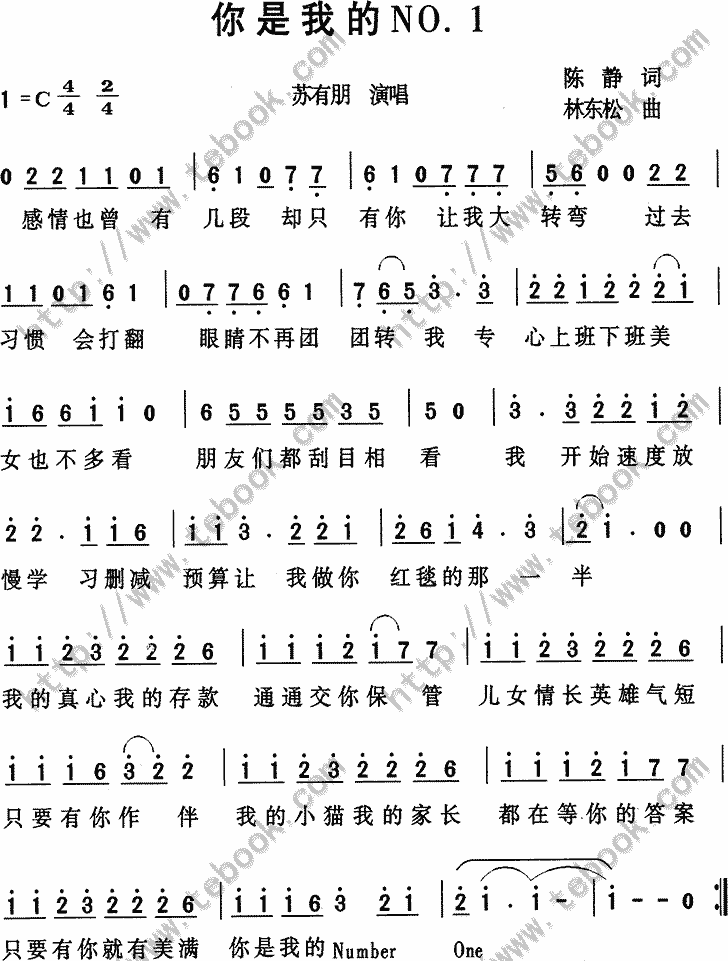 你是我的NO. 1
1 =C 4/4 2/4 苏有朋 演唱 陈 静 词
林东松 曲
0 2 2 1 1 0 1 | 6 1 0 7 7 | 6 1 0 7 7 7 | 5 6 0 0 2 2 |
感情也曾 有 几段 却只 有你 让我大 转弯 过去
1 1 0 1 6 1 | 0 7 7 6 6 1 | 7 6 5 3 . 3 | 2 2 1 2 2 2 1
习惯 会打翻 眼睛不再团 团转 我 专 心上班下班美
1 6 6 1 1 0 | 6 5 5 5 5 3 5 | 5 0 | 3 . 3 2 2 1 2
女也不多看 朋友们都刮目相 看 我 开始速度放
2 2 . 1 1 6 | 1 1 3 . 2 2 1 | 2 6 1 4 . 3 | 2 1 . 0 0
慢学 习删减 预算让 我做你 红毯的那 一 半
1 1 2 3 2 2 2 6 | 1 1 1 2 1 7 7 | 1 1 2 3 2 2 2 6
我的真心我的存款 通通交你保 管 儿女情长英雄气短
1 1 1 6 3 2 2 | 1 1 2 3 2 2 2 6 | 1 1 1 2 1 7 7
只要有你作 伴 我的小猫我的家长 都在等你的答案
1 1 2 3 2 2 2 6 | 1 1 1 6 3 2 1 | 2 1 . 1 - | 1 - - 0 :||
只要有你就有美满 你是我的Number One
http://www.tebook.com